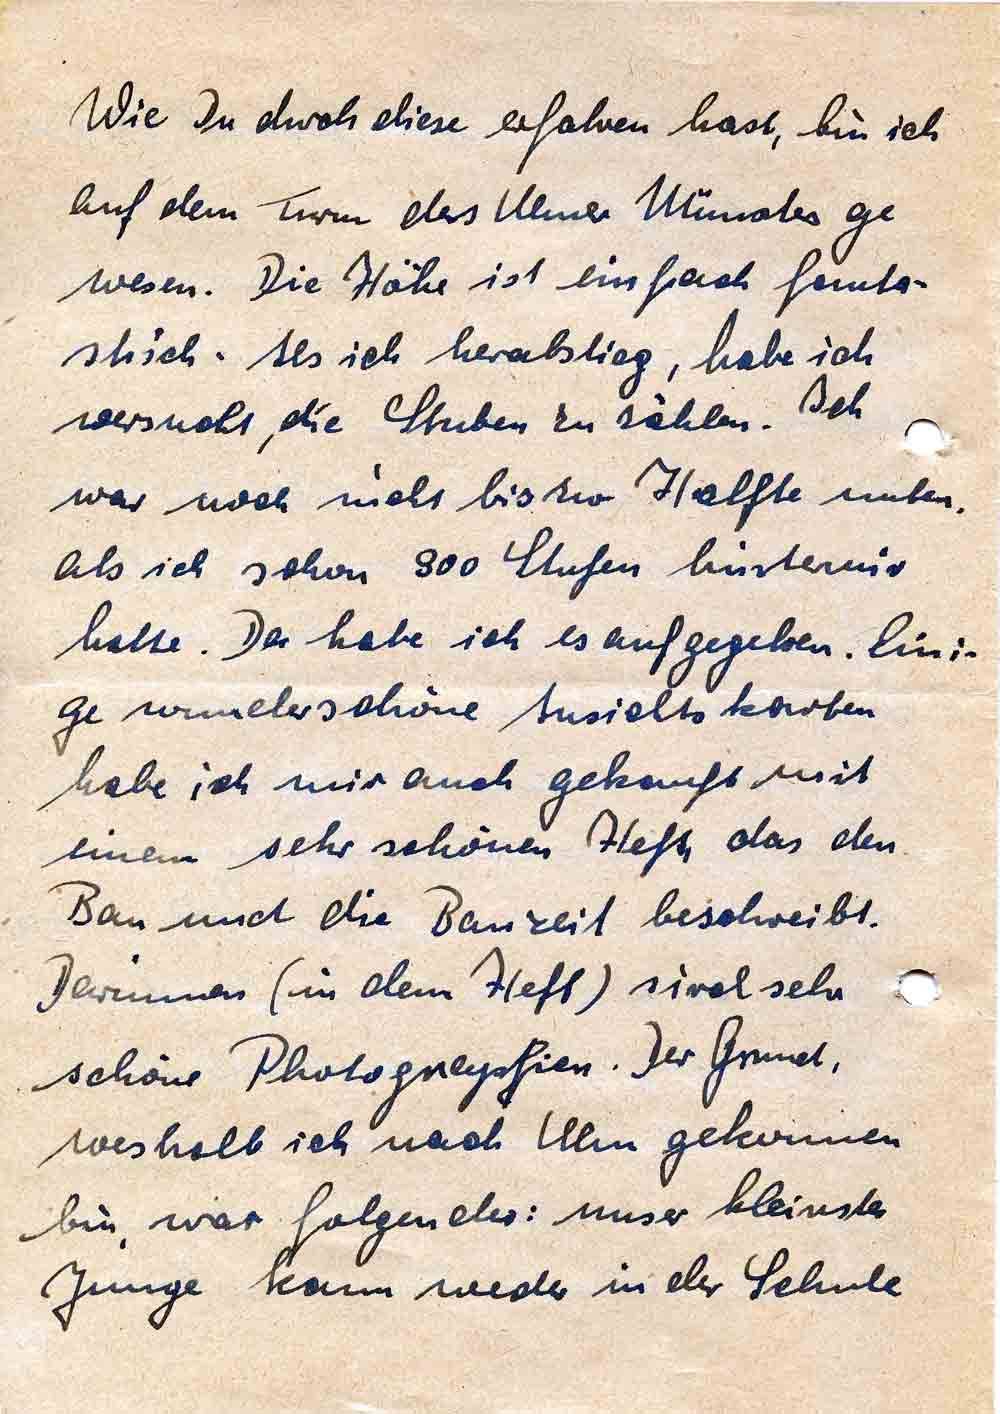 Wie Du durch diese erfahren hast, bin ich
auf dem Turm des Ulmer Münster ge
wesen. Die Höhe ist einfach fanta-
stisch. Als ich herabstieg, habe ich
versucht, die Stuben zu zählen. Ich
war noch nicht bis zur Hälfte unten,
als ich schon 300 Stufen hinter mir
hatte. Da habe ich es aufgegeben. Eini-
ge wunderschöne Ansichtskarten
habe ich mir auch gekauft mit
einem sehr schönen Heft, das den
Bau und die Bauzeit beschreibt.
Darinnen (in dem Heft) sind sehr
schöne Photographien. Der Grund,
weshalb ich nach Ulm gekommen
bin, war folgender: unser kleinster
Junge kann weder in der Schule